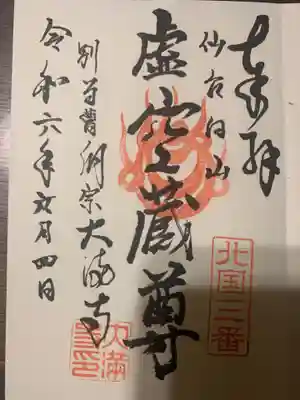 奉拝
仙台向山
北国三番
虚空蔵尊
別当曹洞宗大満寺
大満寺印
令和六年 月四日